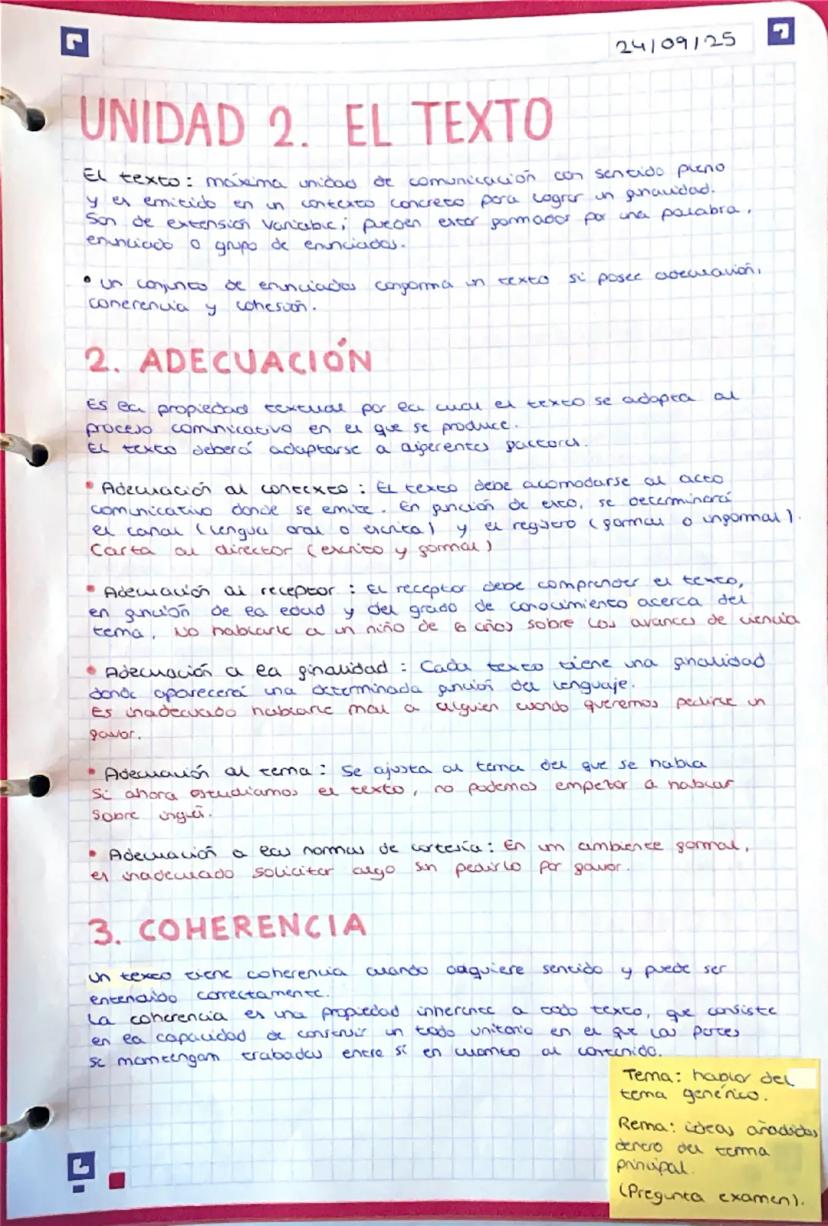 24/09/25
UNIDAD 2. EL TEXTO
El texto: máxima unidad de comunicación con sentido pleno
y es emitido en un contexto concreto para lograr un finalidad.
Son de extensión variable; pueden estar formados por una palabra,
enunciado o grupo de enunciados.
• Un conjunto de enunciados conforma un texto si posee adecuación,
coherencia y cohesión.
2. ADECUACIÓN
Es la propiedad textual por la cual el texto se adapta al
proceso comunicativo en el que se produce.
El texto deberá adaptarse a diferentes factores.
• Adecuación al contexto: El texto debe acomodarse al acto
comunicativo donde se emite. En función de esto, se determinará
el canal (lengua oral o escrita) y el registro (formal o informal).
Carta al director (escrito y formal)
• Adecuación al receptor: El receptor debe comprender el texto,
en función de la edad y del grado de conocimiento acerca del
tema. No hablarle a un niño de 6 años sobre los avances de ciencia
• Adecuación a la finalidad: Cada texto tiene una finalidad
donde aparecerá una determinada función del lenguaje.
Es inadecuado hablarle mal a alguien cuando queremos pedirle un
favor.
• Adecuación al tema: Se ajusta al tema del que se habla
Si ahora estudiamos el texto, no podemos empezar a hablar
sobre inglés.
• Adecuación a las normas de cortesía: En un ambiente formal,
es inadecuado solicitar algo sin pedirlo por favor.
3. COHERENCIA
Un texto tiene coherencia cuando adquiere sentido y puede ser
entendido correctamente.
La coherencia es una propiedad inherente a todo texto, que consiste
en la capacidad de construir un todo unitario en el que las partes
se mantengam trabadas entre sí en cuanto al contenido.
Tema: hablar del
tema genérico.
Rema: ideas añadidas
dentro del tema
principal.
(Pregunta examen).